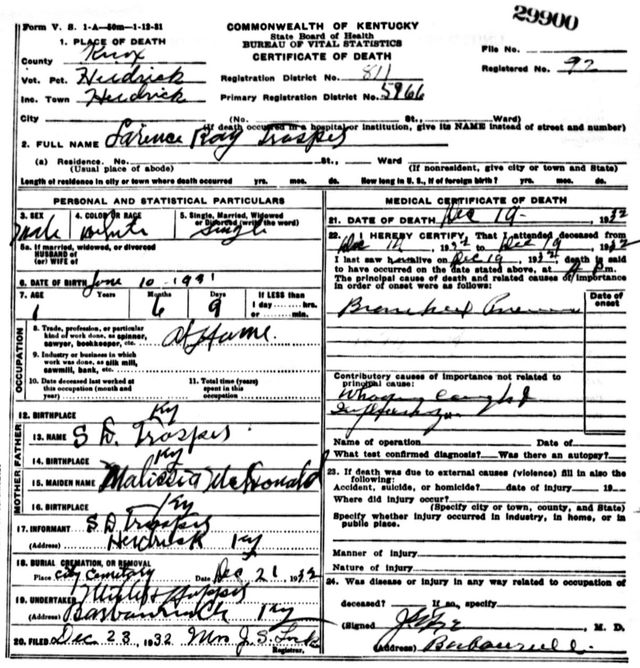 29900
Form V. S. 1-A—50m—1-12-31
COMMONWEALTH OF KENTUCKY
State Board of Health
BUREAU OF VITAL STATISTICS
CERTIFICATE OF DEATH
1. PLACE OF DEATH
County Knox
Vot. Pct. Heidrick
Inc. Town Heidrick
Registration District No. 811
Primary Registration District No. 5966
File No.
Registered No. 92
City (No. St., Ward)
(If death occurred in a hospital or institution, give its NAME instead of street and number)
2. FULL NAME Larence Ray Trosper
(a) Residence. No. St., Ward
(Usual place of abode) (If nonresident, give city or town and State)
Length of residence in city or town where death occurred yrs. mos. ds. How long in U. S., if of foreign birth? yrs. mos. ds.
PERSONAL AND STATISTICAL PARTICULARS
3. SEX 4. COLOR OR RACE 5. Single, Married, Widowed
or Divorced (write the word)
male white Single
5a. If married, widowed, or divorced
HUSBAND of
(or) WIFE of
6. DATE OF BIRTH June 10-1931
7. AGE Years Months Days If LESS than
1 6 9 1 day hrs.
or min.
OCCUPATION
8. Trade, profession, or particular
kind of work done, as spinner,
sawyer, bookkeeper, etc. At Home
9. Industry or business in which
work was done, as silk mill,
sawmill, bank, etc.
10. Date deceased last worked at
this occupation (month and
year)
11. Total time (years)
spent in this
occupation
12. BIRTHPLACE Ky
MOTHER FATHER
13. NAME S D. Trosper
14. BIRTHPLACE Ky
15. MAIDEN NAME Malissia McDonald
16. BIRTHPLACE Ky
17. INFORMANT S D Trosper
(Address) Heidrick Ky
18. BURIAL, CREMATION, OR REMOVAL
Place City Cemetary Date Dec 21 1932
19. UNDERTAKER Hopper
(Address) Barbourville Ky
20. FILED Dec 23, 1932 Mrs J. S.
Registrar.
MEDICAL CERTIFICATE OF DEATH
21. DATE OF DEATH Dec 19 1932
22. I HEREBY CERTIFY, That I attended deceased from
Dec 1932 to Dec 19 1932
I last saw h alive on Dec 19, 1932 death is said
to have occurred on the date stated above, at m.
The principal cause of death and related causes of importance
in order of onset were as follows:
Date of
onset
Contributory causes of importance not related to
principal cause:
Whooping cough &
Name of operation Date of
What test confirmed diagnosis? Was there an autopsy?
23. If death was due to external causes (violence) fill in also the
following:
Accident, suicide, or homicide? date of injury 19
Where did injury occur?
(Specify city or town, county, and State)
Specify whether injury occurred in industry, in home, or in
public place.
Manner of injury
Nature of injury
24. Was disease or injury in any way related to occupation of
deceased? If so, specify
(Signed) M. D.
(Address) Barbourville